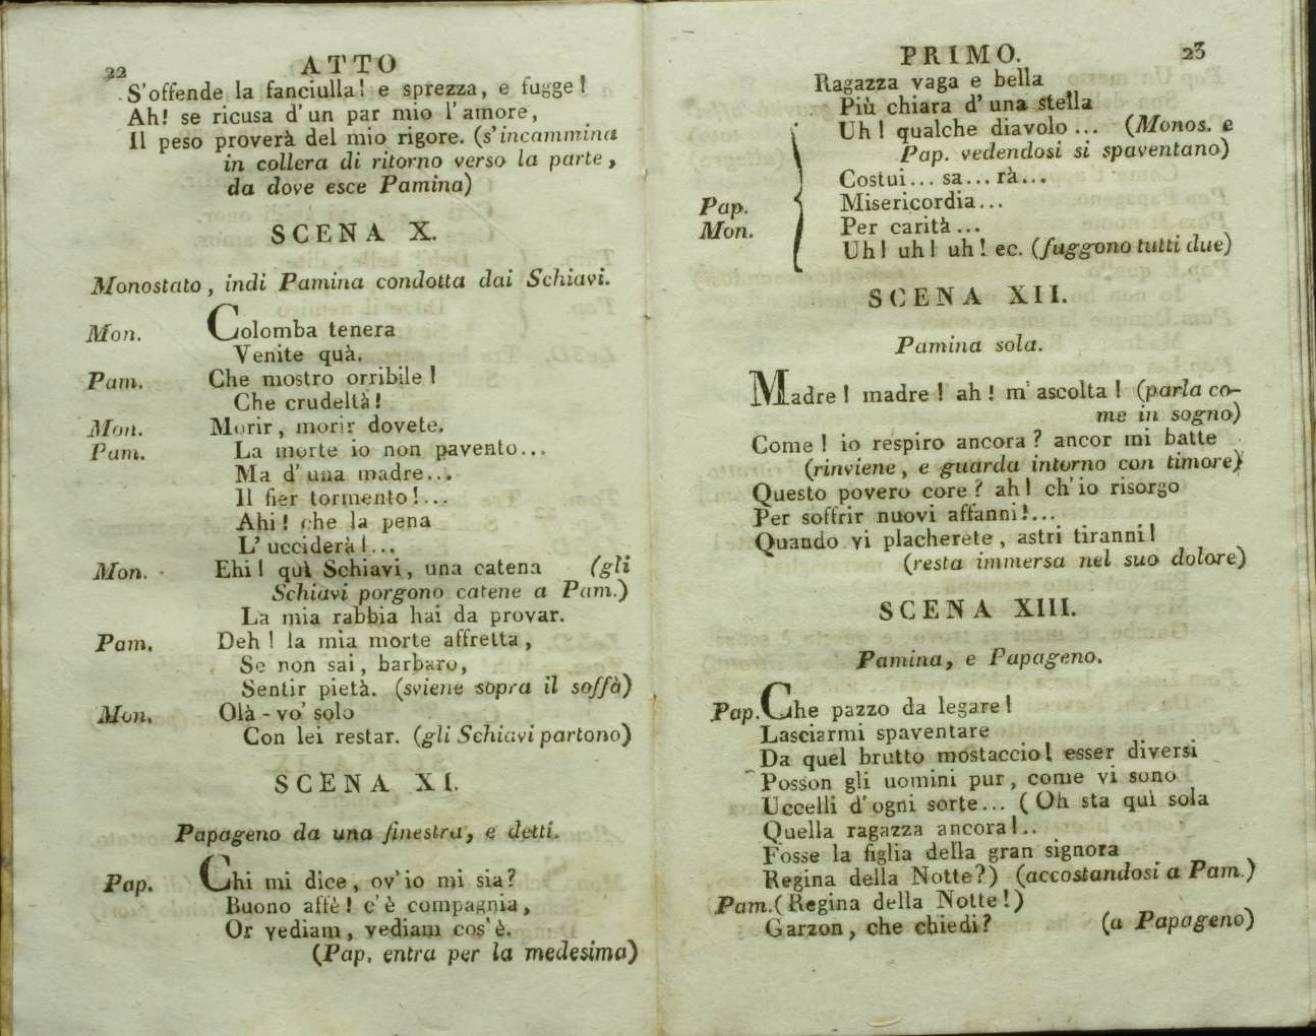 22
ATTO
S'offende la fanciulla! e sprezza, e fugge!
Ah! se ricusa d'un par mio l'amore,
Il peso proverà del mio rigore. (s'incammina
in collera di ritorno verso la parte,
da dove esce Pamina)
SCENA X.
Monostato, indi Pamina condotta dai Schiavi.
Mon. Colomba tenera
Venite quà.
Pam. Che mostro orribile!
Che crudeltà!
Mon. Morir, morir dovete.
Pam. La morte io non pavento...
Ma d'una madre...
Il fier tormento!...
Ahi! che la pena
L'ucciderà!...
Mon. Ehi! quì Schiavi, una catena (gli
Schiavi porgono catene a Pam.)
La mia rabbia hai da provar.
Pam. Deh! la mia morte affretta,
Se non sai, barbaro,
Sentir pietà. (sviene sopra il soffà)
Mon. Olà - vo' solo
Con lei restar. (gli Schiavi partono)
SCENA XI.
Papageno da una finestra, e detti.
Pap. Chi mi dice, ov'io mi sia?
Buono affè! c'è compagnia,
Or vediam, vediam cos'è.
(Pap. entra per la medesima)
PRIMO.
23
Ragazza vaga e bella
Più chiara d'una stella
Uh! qualche diavolo... (Monos. e
Pap. vedendosi si spaventano)
Costui... sa... rà...
Pap. Misericordia...
Mon. Per carità...
Uh! uh! uh! ec. (fuggono tutti due)
SCENA XII.
Pamina sola.
Madre! madre! ah! m'ascolta! (parla co-
me in sogno)
Come! io respiro ancora? ancor mi batte
(rinviene, e guarda intorno con timore)
Questo povero core? ah! ch'io risorgo
Per soffrir nuovi affanni!...
Quando vi placherete, astri tiranni!
(resta immersa nel suo dolore)
SCENA XIII.
Pamina, e Papageno.
Pap. Che pazzo da legare!
Lasciarmi spaventare
Da quel brutto mostaccio! esser diversi
Posson gli uomini pur, come vi sono
Uccelli d'ogni sorte... (Oh sta quì sola
Quella ragazza ancora!..
Fosse la figlia della gran signora
Regina della Notte?) (accostandosi a Pam.)
Pam. (Regina della Notte!)
Garzon, che chiedi? (a Papageno)